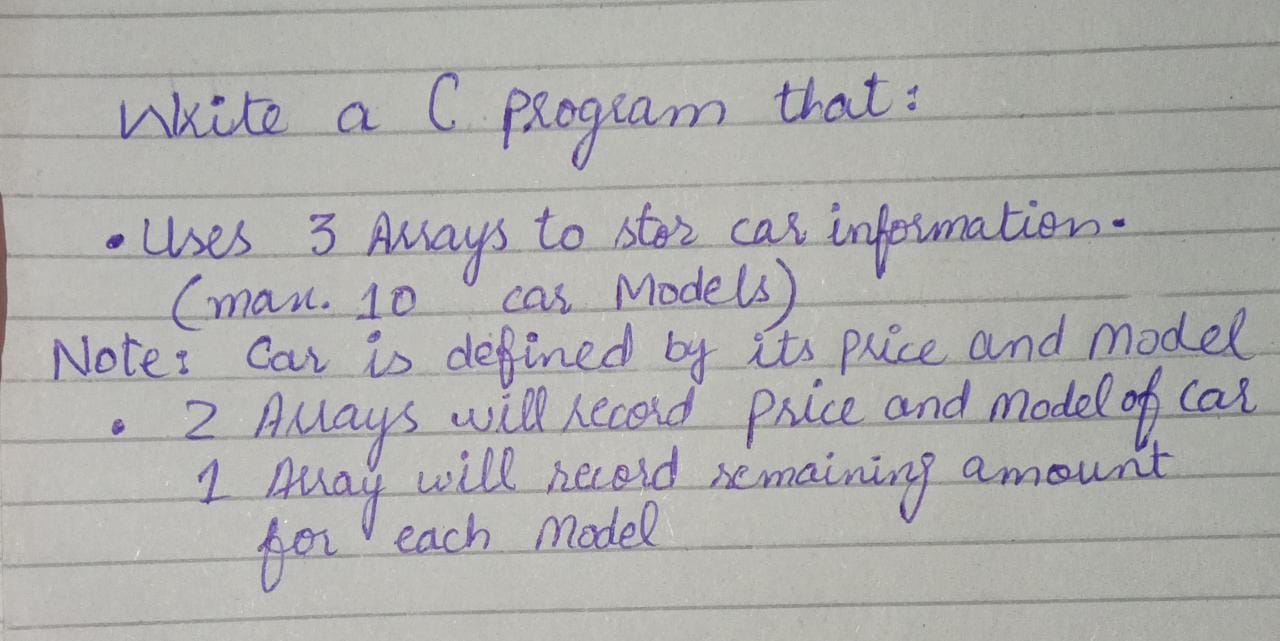 Write a C program that:
• Uses 3 Arrays to stor car information.
(max. 10 car Models)
Note: Car is defined by its price and model
• 2 Arrays will record price and model of car
1 Array will record remaining amount
for each Model